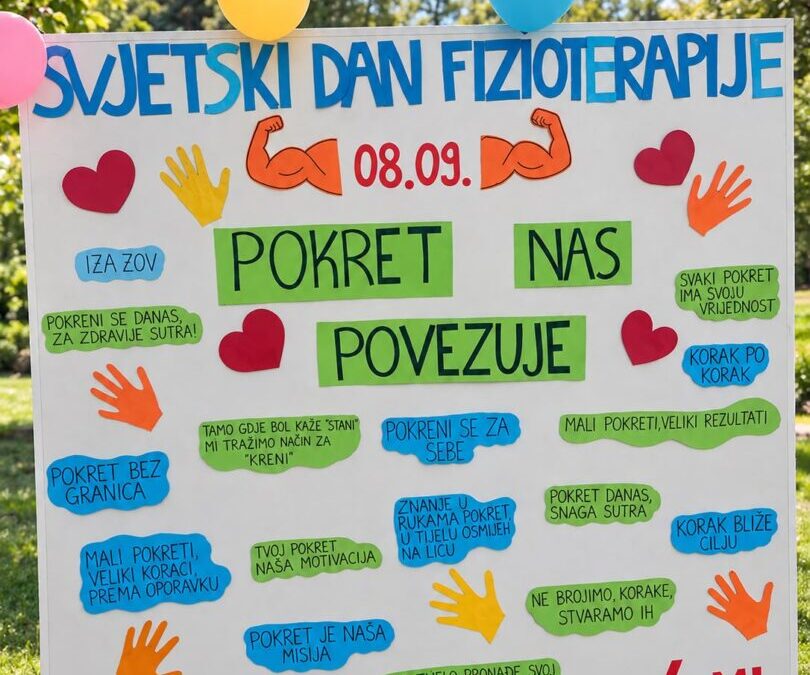 SVJETSKI DAN FIZIOTERAPIJE
08.09.
POKRET NAS
POVEZUJE
IZAZOV
SVAKI POKRET
IMA SVOJU
VRIJEDNOST
POKRENI SE DANAS,
ZA ZDRAVIJE SUTRA!
KORAK PO
KORAK
TAMO GDJE BOL KAŽE "STANI"
MI TRAŽIMO NAČIN ZA
"KRENI"
POKRENI SE ZA
SEBE
MALI POKRETI, VELIKI REZULTATI
POKRET BEZ
GRANICA
ZNANJE U
RUKAMA POKRET,
U TIJELU OSMIJEH
NA LICU
POKRET DANAS,
SNAGA SUTRA
KORAK BLIŽE
CILJU
MALI POKRETI,
VELIKI KORACI,
PREMA OPORAVKU
TVOJ POKRET
NAŠA MOTIVACIJA
NE BROJIMO, KORAKE,
STVARAMO IH
POKRET JE NAŠA
MISIJA
TIJELO PRONAĐE SVOJ